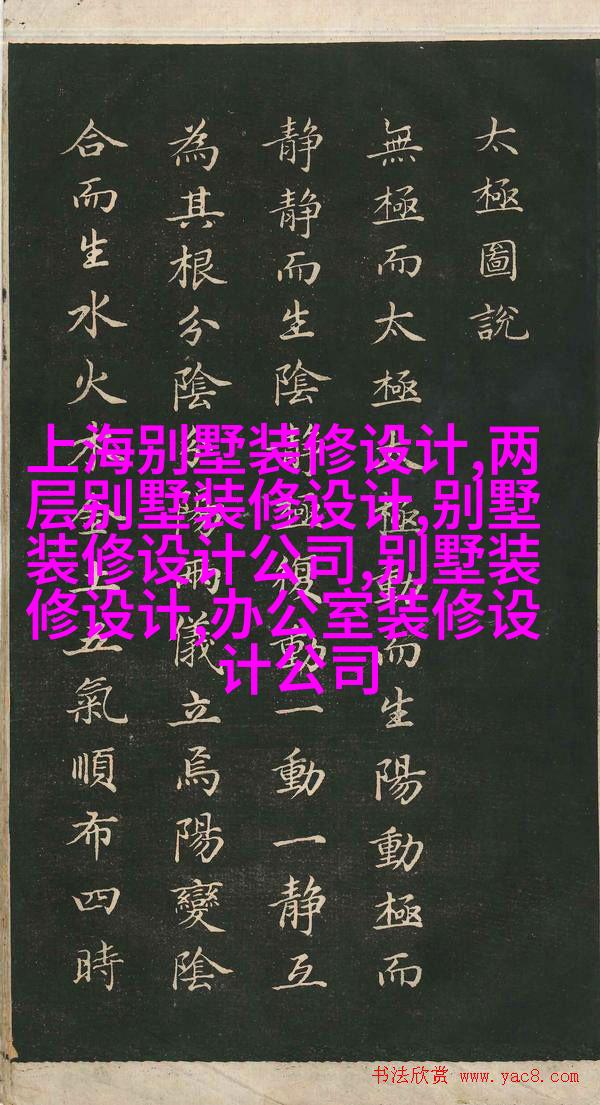 太極圖説
無極而太極太極動而生陽動極而
静静而生陰静極復動一動一静互
為其根分陰分陽兩儀立焉陽變陰
合而生水火木金土五氣順布四時
上海别墅装修设计,两
层别墅装修设计,别墅
装修设计公司,别墅装
修设计,办公室装修设
计公司
书法欣赏 www.yac8.com